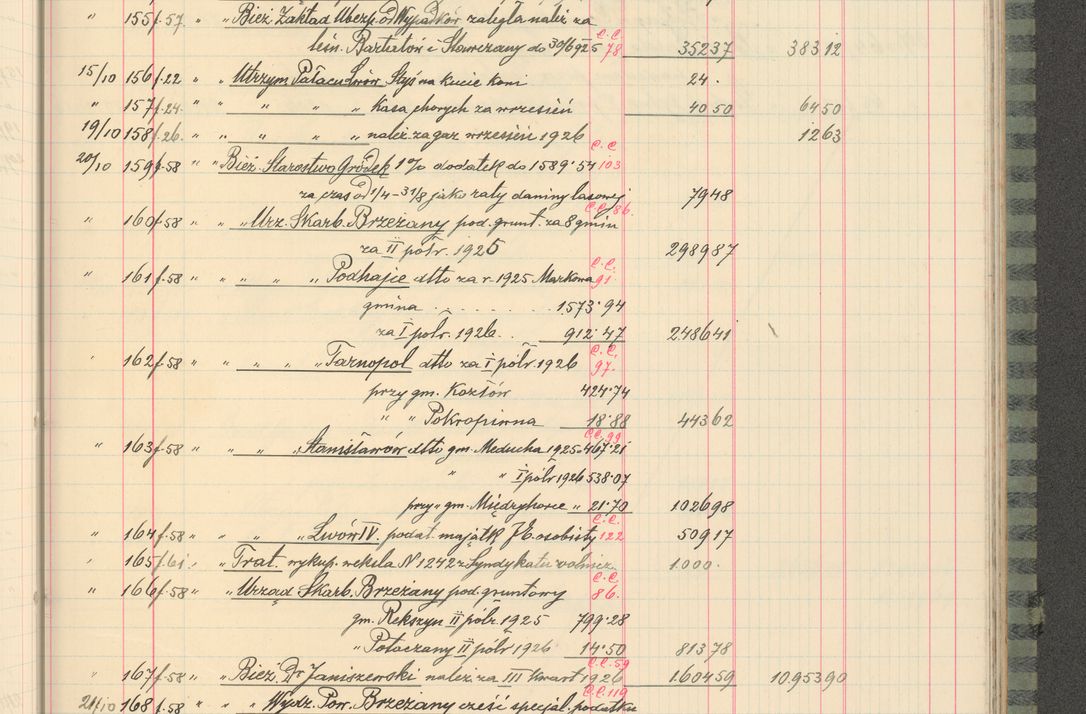 " 155 f.57. " " Bież. Zakład Ubezp. od Wypadków zaległa należ za
leśn. Bartatów i Stawczany do 30/6 925 C.C. 78 352 37 383 12
15/10 156 f.22 " " Utrzym. Pałacu Lwów Styś na kucie koni 24 .
" 157 f.24. " " " " " Kasa chorych za wrzesień 40 50 64 50
19/10 158 f.26. " " " " " należ. za gaz wrzesień 1926 12 63
20/10 159 f.58 " " Bież. Starostwo Gródek 1% dodatek do 1589.54 C.C. 103
za czas od 1/4 – 31/8 jako raty daniny lasowej 79 48
" 160 f.58 " " Urz. Skarb. Brzeżany pod. grunt. za 8 gmin C.C. 86.
za II półr. 1925 2989 87
" 161 f.58 " " " " " Podhajce dtto za r. 1925 Markowa C.C. 91.
gmina . . . . . . . 1.573.94
za I półr. 1926. . . 912.47 2486 41
" 162 f.58 " " " " " Tarnopol dtto za I półr. 1926 C.C. 97.
przy gm. Kozłów 424.74
" " Pokropiwna 18.88 443 62
" 163 f.58 " " " " Stanisławów dtto gm. Meducha 1925 - 467.21 C.C. 99
" " I półr 1926 538.07
przy gm. Międzyhorce " 21.70 1026 98
" 164 f.58 " " " " Lwów IV. podat. majątk J.E. osobisty C.C. 122 509 17
" 165 f.61. " " Trat. wykup. weksla N 1242 z Syndykatu rolnicz. 1.000 .
" 166 f.58 " " Urząd Skarb. Brzeżany pod. gruntowy C.C. 86.
gm. Rekszyn II półr. 1925 799.28
" Potoczany II półr 1926 14.50 813 78
" 167 f.58 " " Bież. Dr Janiszewski należ. za III kwart 1926 C.C. 59 1.604 59 10.953 90
21/10 168 f.58 " " Wydz. Pow. Brzeżany cześć specjal. podatku C.C. 119